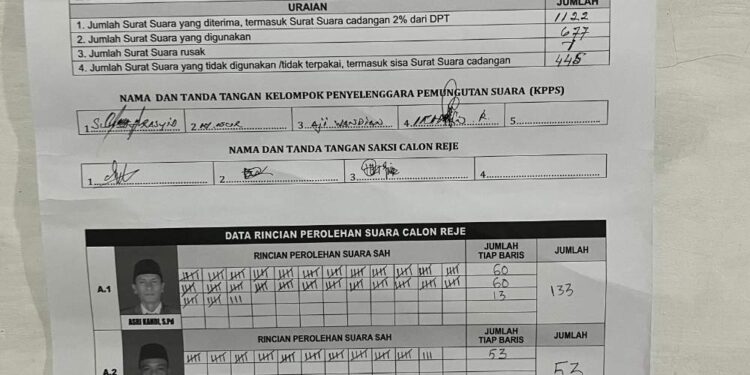 URAIAN JUMLAH
1. Jumlah Surat Suara yang diterima, termasuk Surat Suara cadangan 2% dari DPT 1122
2. Jumlah Surat Suara yang digunakan 677
3. Jumlah Surat Suara rusak
4. Jumlah Surat Suara yang tidak digunakan /tidak terpakai, termasuk sisa Surat Suara cadangan 445
NAMA DAN TANDA TANGAN KELOMPOK PENYELENGGARA PEMUNGUTAN SUARA (KPPS)
1. 2. 3. Aji WANDIAN 4. 5.
NAMA DAN TANDA TANGAN SAKSI CALON REJE
1. 2. 3. 4.
DATA RINCIAN PEROLEHAN SUARA CALON REJE
RINCIAN PEROLEHAN SUARA SAH JUMLAH TIAP BARIS JUMLAH
A.1 60
60
13
133
ASRI KANDI, S.Pd
RINCIAN PEROLEHAN SUARA SAH JUMLAH TIAP BARIS JUMLAH
A.2 53
53